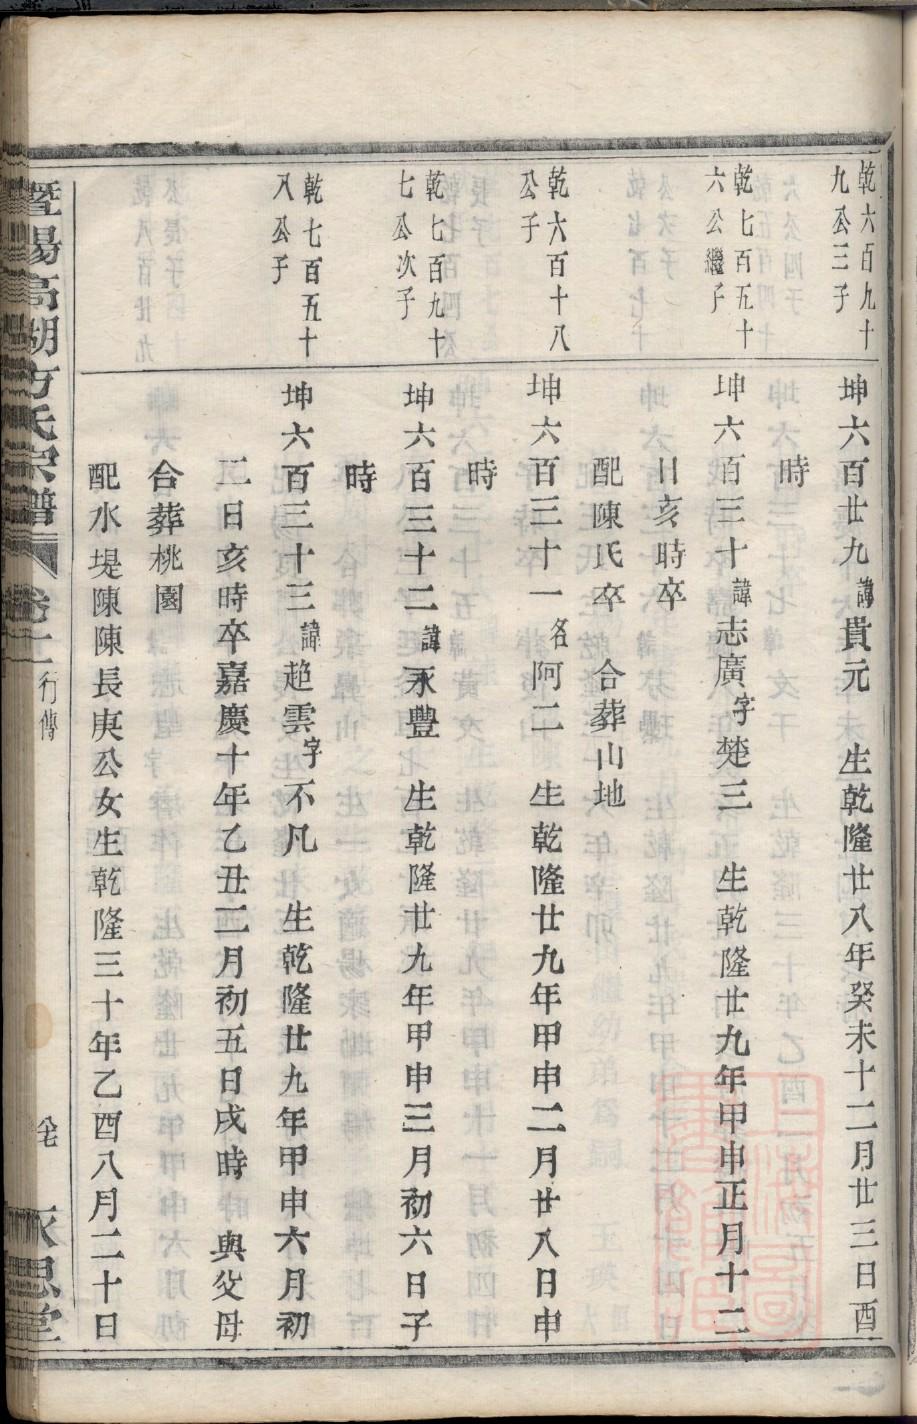 乾六百九十
九公三子
坤六百廿九諱貴元　生乾隆廿八年癸未十二月廿三日酉
時
乾七百五十
六公繼子
坤六百三十諱志廣字楚三　生乾隆廿九年甲申正月十二
日亥時卒
配陳氏卒　合葬山地
乾六百十八
公子
坤六百三十一名阿二　生乾隆廿九年甲申二月廿八日申
時
乾七百九十
七公次子
坤六百三十二諱永豐　生乾隆廿九年甲申三月初六日子
時
乾七百五十
八公子
坤六百三十三諱趙雲字不凡　生乾隆廿九年甲申六月初
二日亥時卒嘉慶十年乙丑二月初五日戌時　與父母
合葬桃園
配水堤陳陳長庚公女生乾隆三十年乙酉八月二十日
暨陽高湖方氏宗譜　卷十　行傳　永思堂